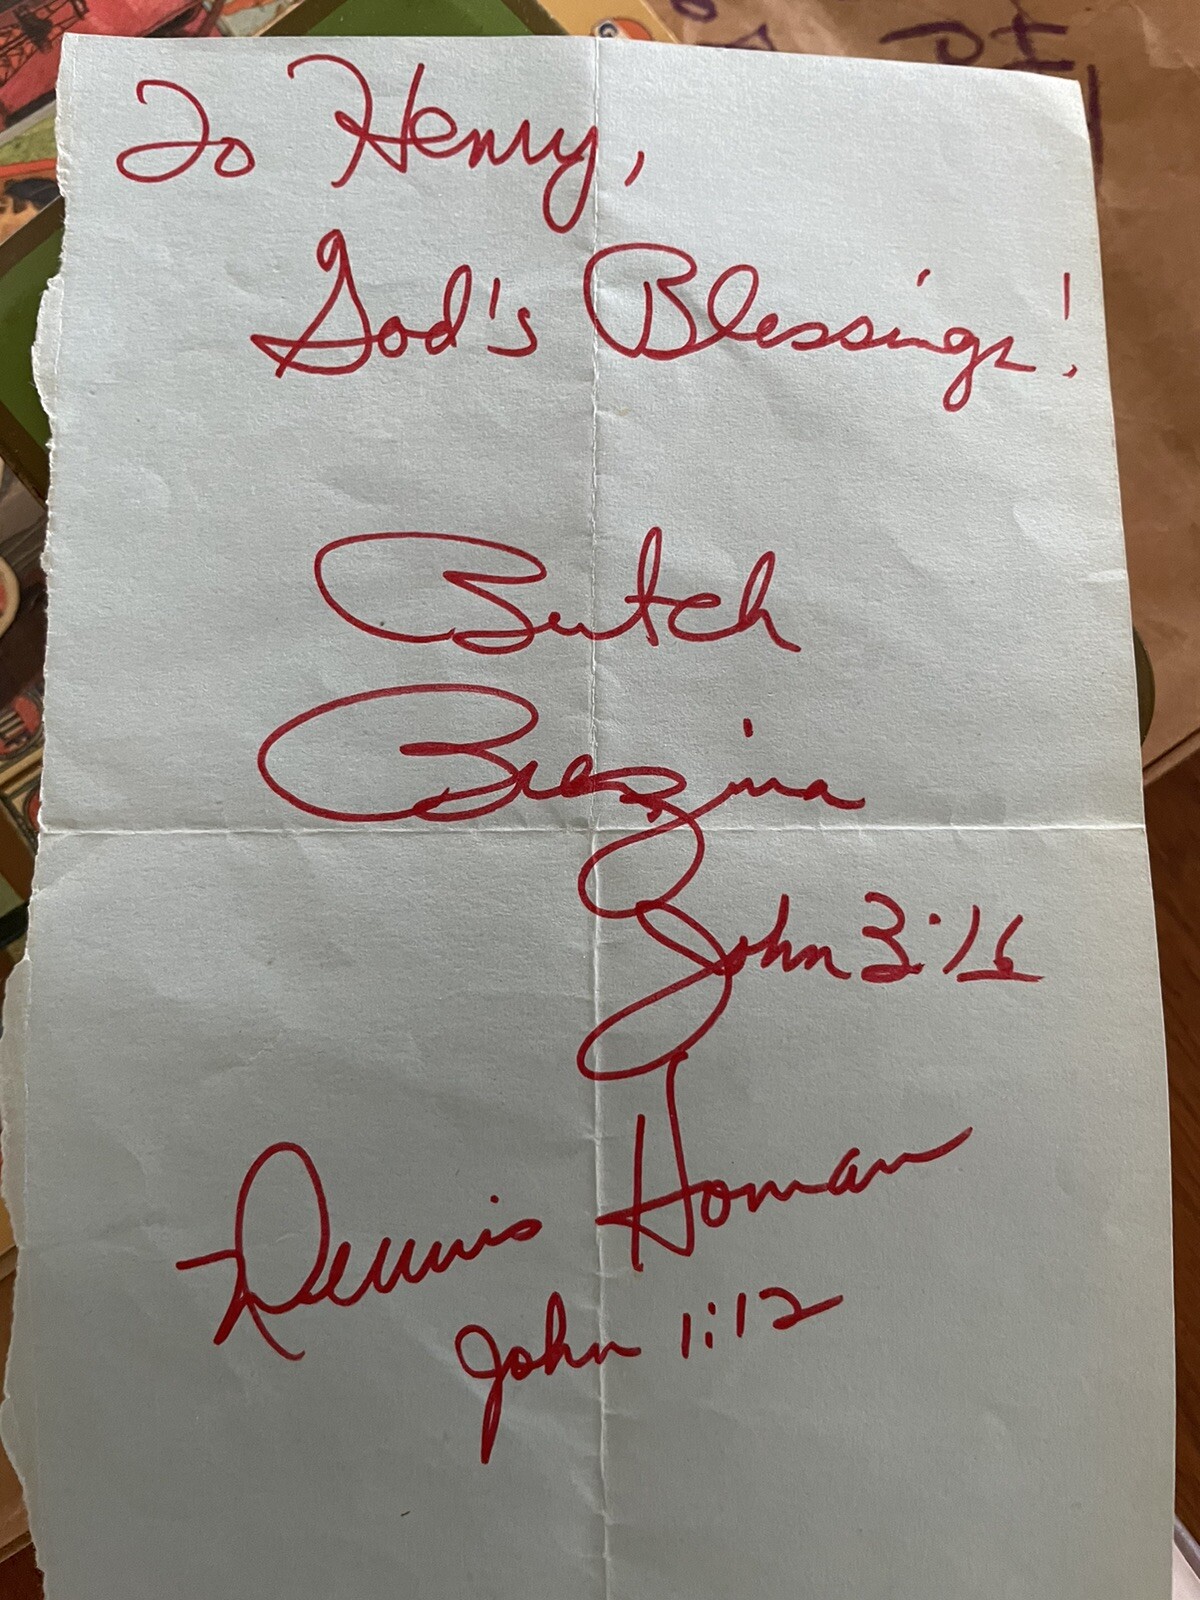 To Henry,
God's Blessings!
Butch
Brezina
John 3:16
Dennis Homan
John 1:12